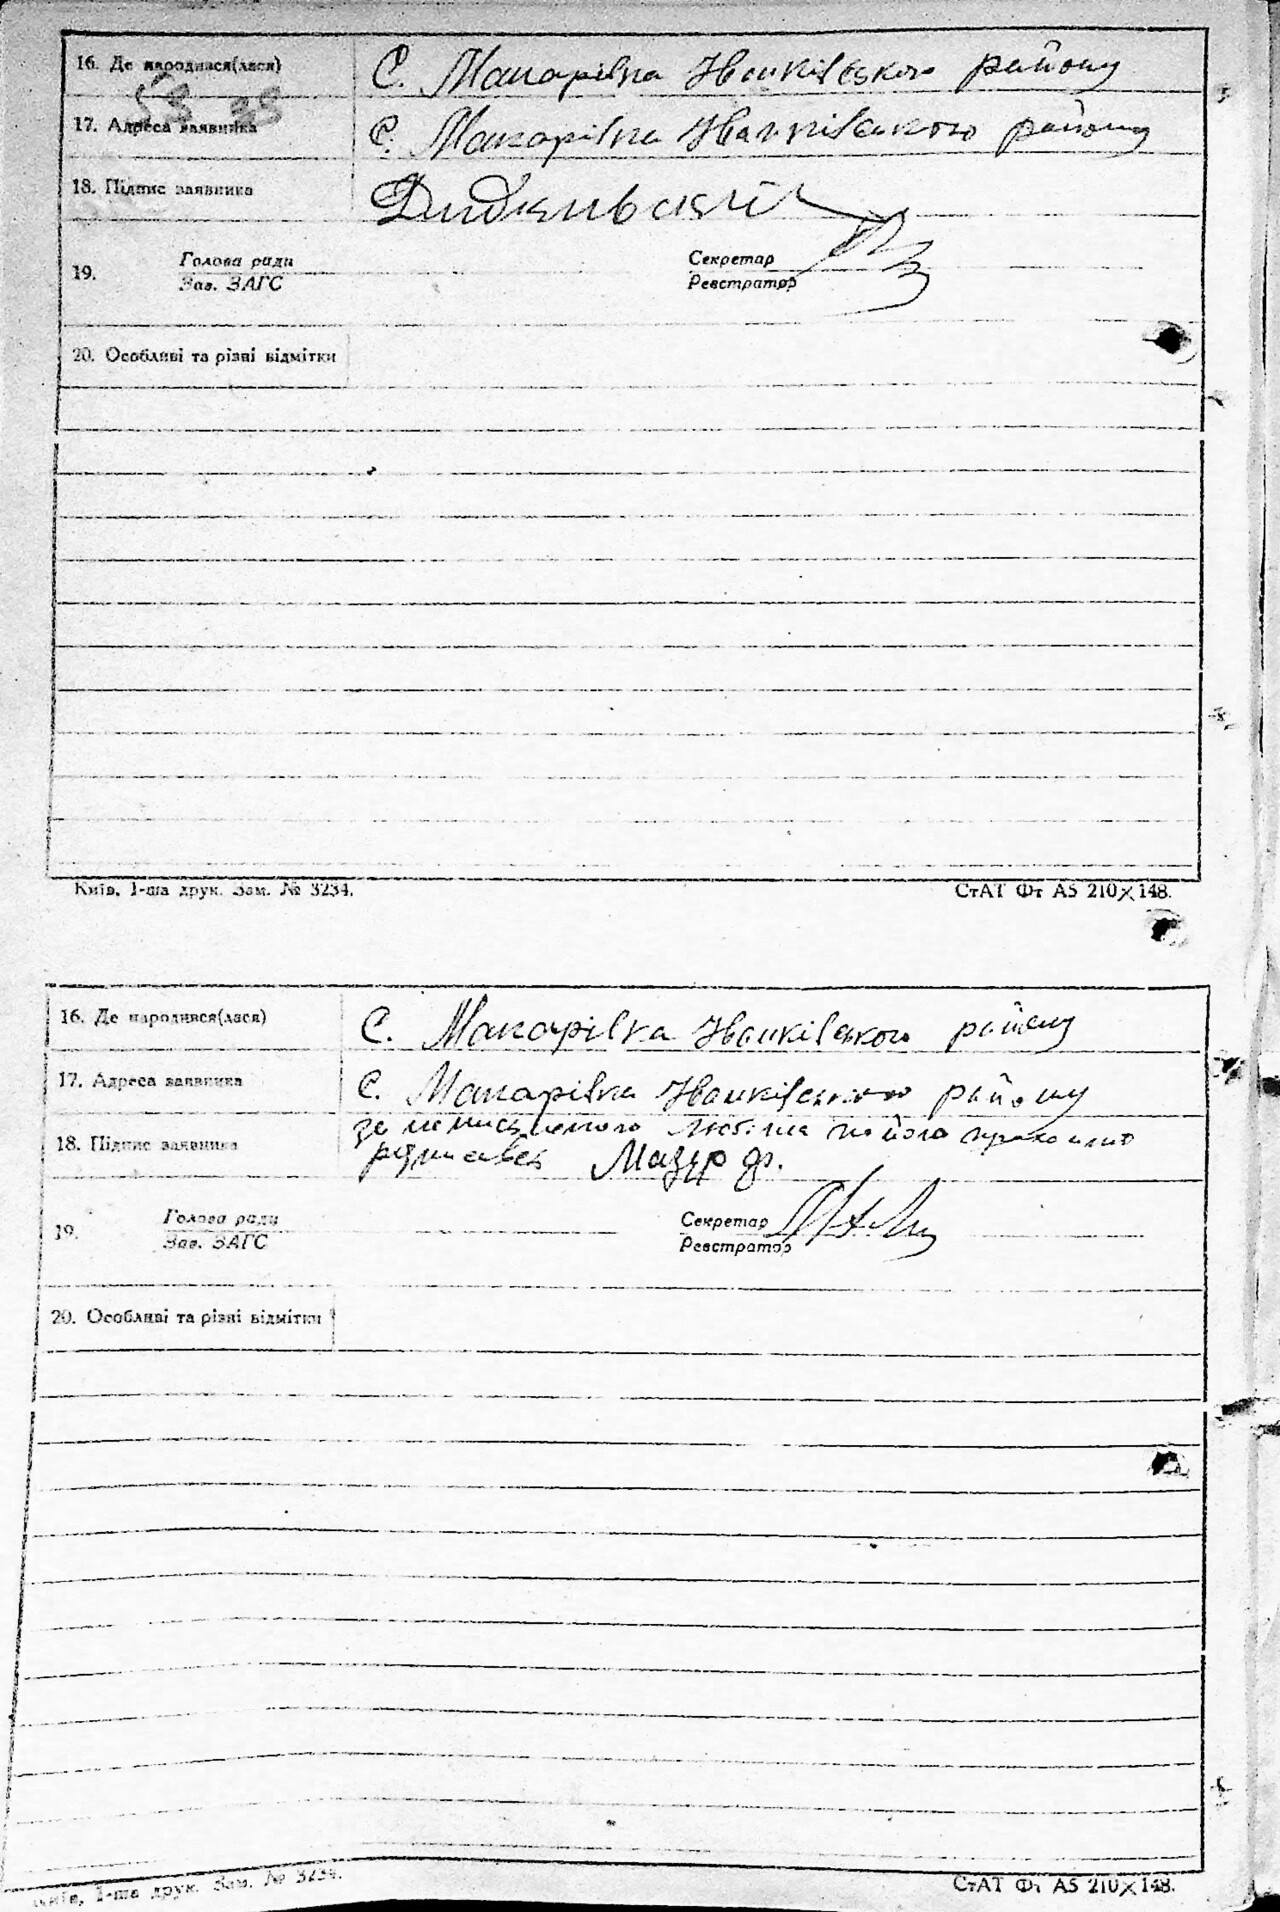 16. Де народився(лася) С. Макарівка Іванківського району
17. Адреса заявника С. Макарівка Іванківського району
18. Підпис заявника Дидківський
19. Голова ради Секретар
Зав. ЗАГС Реєстратор
20. Особливі та різні відмітки
Київ, 1-ша друк. Зам. № 3234. СтАТ Фт А5 210×148.
16. Де народився(лася) С. Макарівка Іванківського району
17. Адреса заявника С. Макарівка Іванківського району
за
18. Підпис заявника Мазур ф.
19. Голова ради Секретар
Зав. ЗАГС Реєстратор
20. Особливі та різні відмітки
Київ, 1-ша друк. Зам. № 3234. СтАТ Фт А5 210×148.